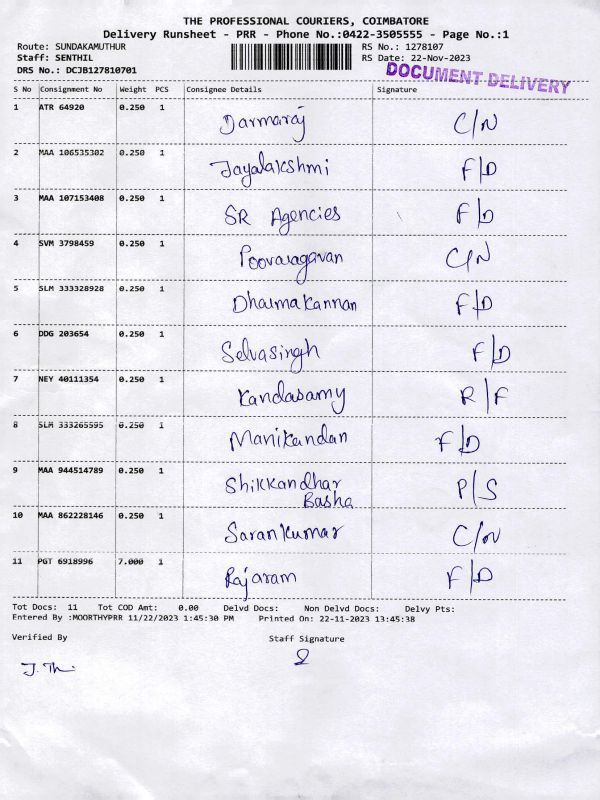 THE PROFESSIONAL COURIERS, COIMBATORE
Delivery Runsheet - PRR - Phone No.:0422-3505555 - Page No.:1
Route: SUNDAKAMUTHUR RS No.: 1278107
Staff: SENTHIL RS Date: 22-Nov-2023
DRS No.: DCJB127810701 DOCUMENT DELIVERY
S No Consignment No Weight PCS Consignee Details Signature
1 ATR 64920 0.250 1 Darmaraj C/N
2 MAA 106535302 0.250 1 Jayalakshmi F/D
3 MAA 107153408 0.250 1 SR Agencies F/D
4 SVM 3798459 0.250 1 Poovaragavan C/N
5 SLM 333328928 0.250 1 Dharmakannan F/D
6 DDG 203654 0.250 1 Selvasingh F/D
7 NEY 40111354 0.250 1 Kandasamy R/F
8 SLM 333265595 0.250 1 Manikandan F/D
9 MAA 944514789 0.250 1 Shikkandhar P/S
Basha
10 MAA 862228146 0.250 1 Sarankumar C/N
11 PGT 6918996 7.000 1 Rajaram F/D
Tot Docs: 11 Tot COD Amt: 0.00 Delvd Docs: Non Delvd Docs: Delvy Pts:
Entered By :MOORTHYPRR 11/22/2023 1:45:30 PM Printed On: 22-11-2023 13:45:38
Verified By Staff Signature